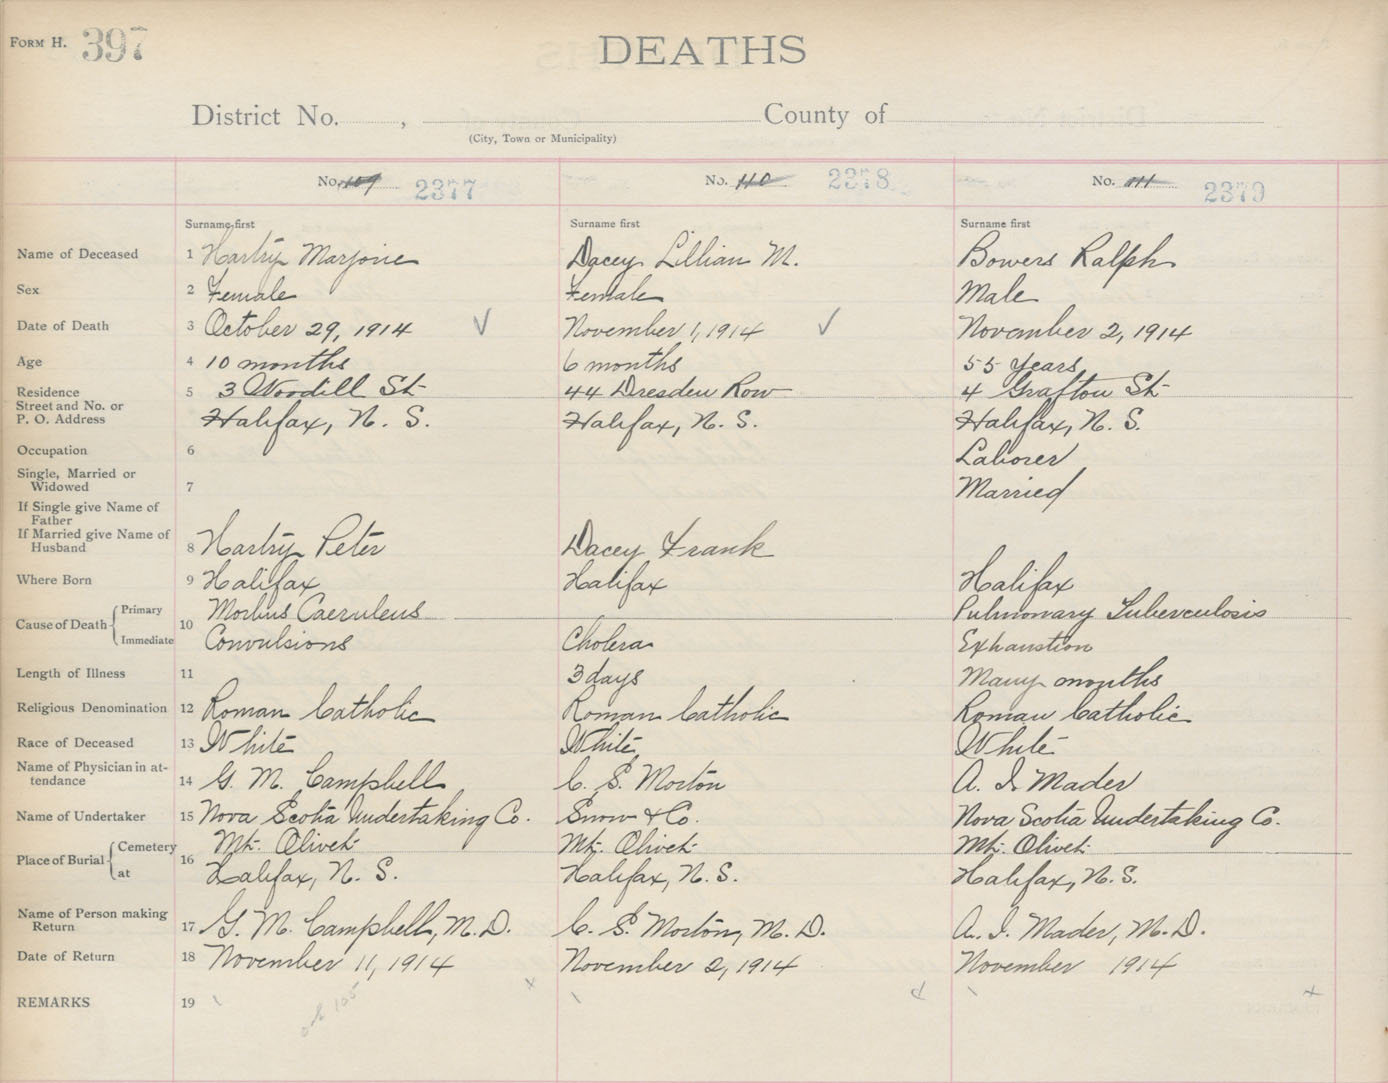 FORM H. 397
DEATHS
District No. , County of
(City, Town or Municipality)
No. 109 2377 No. 110 2378 No. 111 2379
Surname first Surname first Surname first
Name of Deceased 1 Hartry Marjorie Dacey Lillian M. Bowers Ralph
Sex 2 Female Female Male
Date of Death 3 October 29, 1914 ✓ November 1, 1914 ✓ November 2, 1914
Age 4 10 months 6 months 55 Years
Residence 5 3 Woodill St 44 Dresden Row 4 Grafton St
Street and No. or
P. O. Address Halifax, N. S. Halifax, N. S. Halifax, N. S.
Occupation 6 Laborer
Single, Married or
Widowed 7 Married
If Single give Name of
Father
If Married give Name of
Husband 8 Hartry Peter Dacey Frank
Where Born 9 Halifax Halifax Halifax
Primary Morbus Caeruleus Pulmonary Tuberculosis
Cause of Death 10
Immediate Convulsions Cholera Exhaustion
Length of Illness 11 3 days Many months
Religious Denomination 12 Roman Catholic Roman Catholic Roman Catholic
Race of Deceased 13 White White White
Name of Physician in at-
tendance 14 G. M. Campbell C. S. Morton A. I. Mader
Name of Undertaker 15 Nova Scotia Undertaking Co. Snow & Co. Nova Scotia Undertaking Co.
Cemetery Mt. Olivet Mt. Olivet Mt. Olivet
Place of Burial 16
at Halifax, N. S. Halifax, N. S. Halifax, N. S.
Name of Person making
Return 17 G. M. Campbell, M. D. C. S. Morton, M. D. A. I. Mader, M. D.
Date of Return 18 November 11, 1914 November 2, 1914 November 1914
REMARKS 19